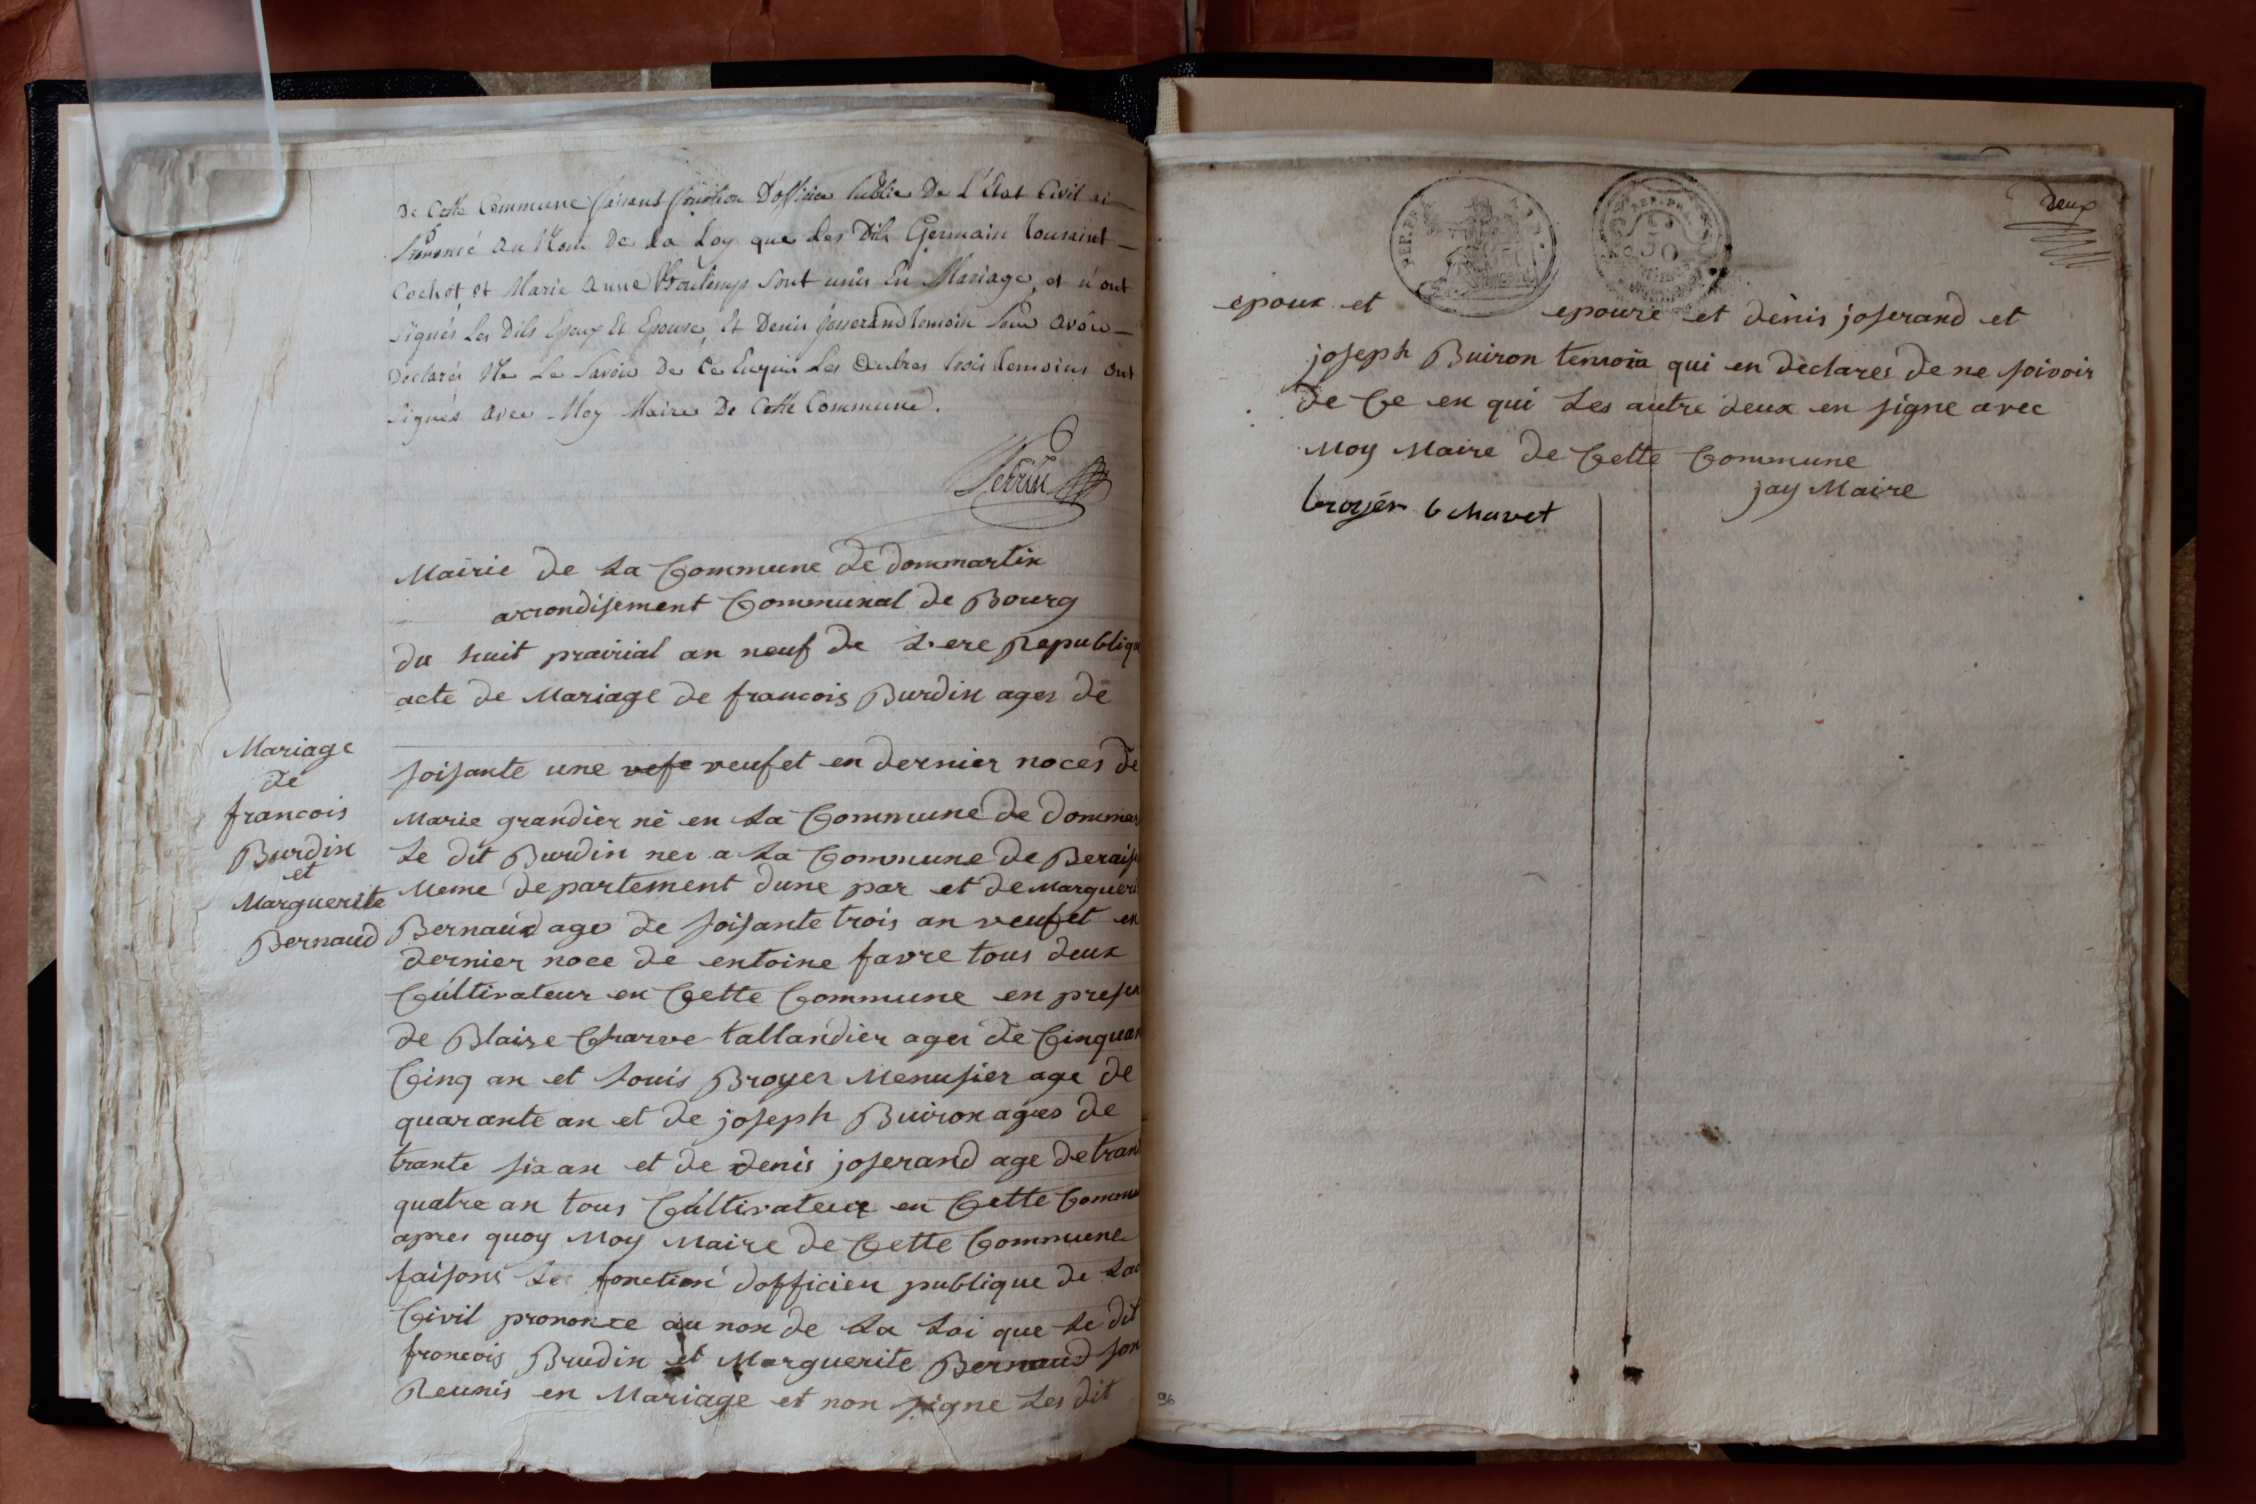 De Cette Commune faisant fonction D'officier Public De L'Etat Civil ai
Prononcé au Nom De La Loy que Les Dits Germain Tousaint
Cochet et Marie Anne Boutemps Sont unis En Mariage, et n'ont
Signés Les Dits Epoux Et Epouse, Et Denis Josserand temoin Pour avoir
Declarés Ne Le Savoir De Ce Enquis Les Autres trois temoins ont
Signés avec Moy Maire De Cette Commune.
Perrin
Mairie de La Commune de dommartin
arrondisement Communal de Bourg
du huit prairial an neuf de L'ere Republiqu
acte de Mariage de francois Burdin ages de
Mariage
de
francois
Burdin
et
Marguerite
Bernaud
soisante une vefe veuf et en dernier noces de
Marie grandier né en La Commune de Dommar
Le dit Burdin nes a La Commune de Berais
Meme departement dune par et de Margueri
Bernaud age de soisante trois an veuf et en
dernier noce de entoine favre tous deux
Cultivateur en Cette Commune en presen
de Blaise Charve tallandier ages de Cinquan
Cinq an et Louis Broyer Menusier age de
quarante an et de joseph Buiron agees de
trante six an et de denis joserand age de tran
quatre an tous Cultivateur en Cette Commu
apres quoy Moy Maire de Cette Commune
faisons Les fonction dofficieu publique de
Civil prononce au non de La Loi que Le dit
francois Brudin et Marguerite Bernaud son
Reunis en Mariage et non signe Les dit
deux
REP. FRA.
50
epoux et epouse et denis joserand et
joseph Buiron temoin qui en declares de ne soivoir
de Ce en qui Les autre deux en signe avec
Moy Maire de Cette Commune
jay Maire
broyér b charvet
96